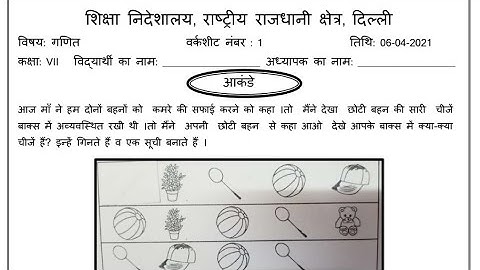 शिक्षा निदेशालय, राष्ट्रीय राजधानी क्षेत्र, दिल्ली
विषय: गणित वर्कशीट नंबर : 1 तिथि: 06-04-2021
कक्षा: VII विद्यार्थी का नाम: ____________________ अध्यापक का नाम: ________________
आकंडे
आज माँ ने हम दोनों बहनों को कमरे की सफाई करने को कहा ।तो मैंने देखा छोटी बहन की सारी चीजें
बाक्स में अव्यवस्थित रखी थी ।तो मैंने अपनी छोटी बहन से कहा आओ देखे आपके बाक्स में क्या-क्या
चीजें हैं? इन्हें गिनते हैं व एक सूची बनाते हैं ।